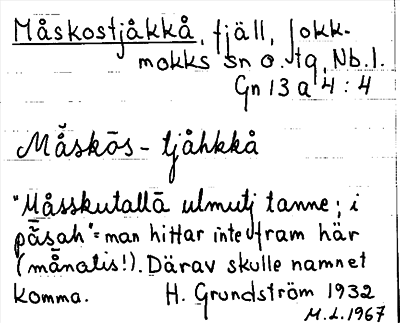 Måskostjåkkå, fjäll, Jokk-
mokks sn o. tg, Nb.l.
Gn 13 a 4 : 4
Måskōs - tjåhkkå
"Måsskutallā ulmutj tanne; i
pāsah" = man hittar inte fram här
(månatis!). Därav skulle namnet
komma. H. Grundström 1932
M.L. 1967